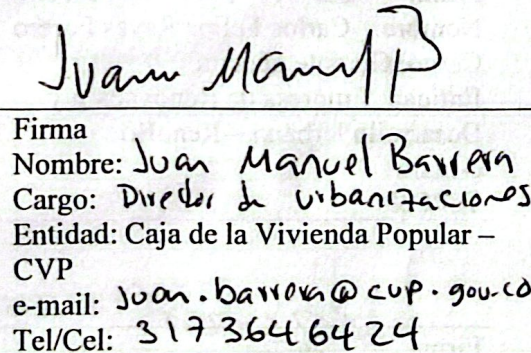 Juan Manuel B
Firma
Nombre: Juan Manuel Barrera
Cargo: Director de urbanizaciones
Entidad: Caja de la Vivienda Popular –
CVP
e-mail: juan.barrera@cvp.gov.co
Tel/Cel: 3173646424